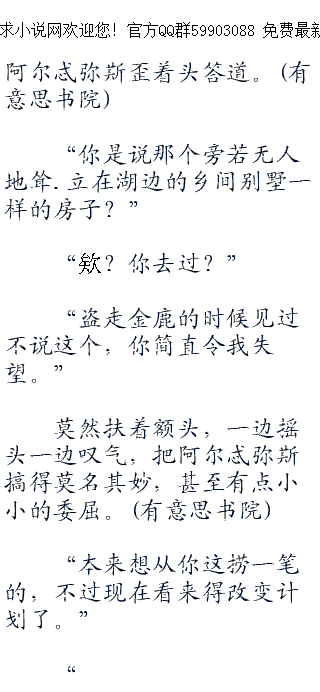 求小说网欢迎您！官方QQ群59903088 免费最新
阿尔忒弥斯歪着头答道。(有
意思书院)
“你是说那个旁若无人
地耸.立在湖边的乡间别墅一
样的房子？”
“欸？你去过？”
“盗走金鹿的时候见过
不说这个，你简直令我失
望。”
莫然扶着额头，一边摇
头一边叹气，把阿尔忒弥斯
搞得莫名其妙，甚至有点小
小的委屈。(有意思书院)
“本来想从你这捞一笔
的，不过现在看来得改变计
划了。”
“